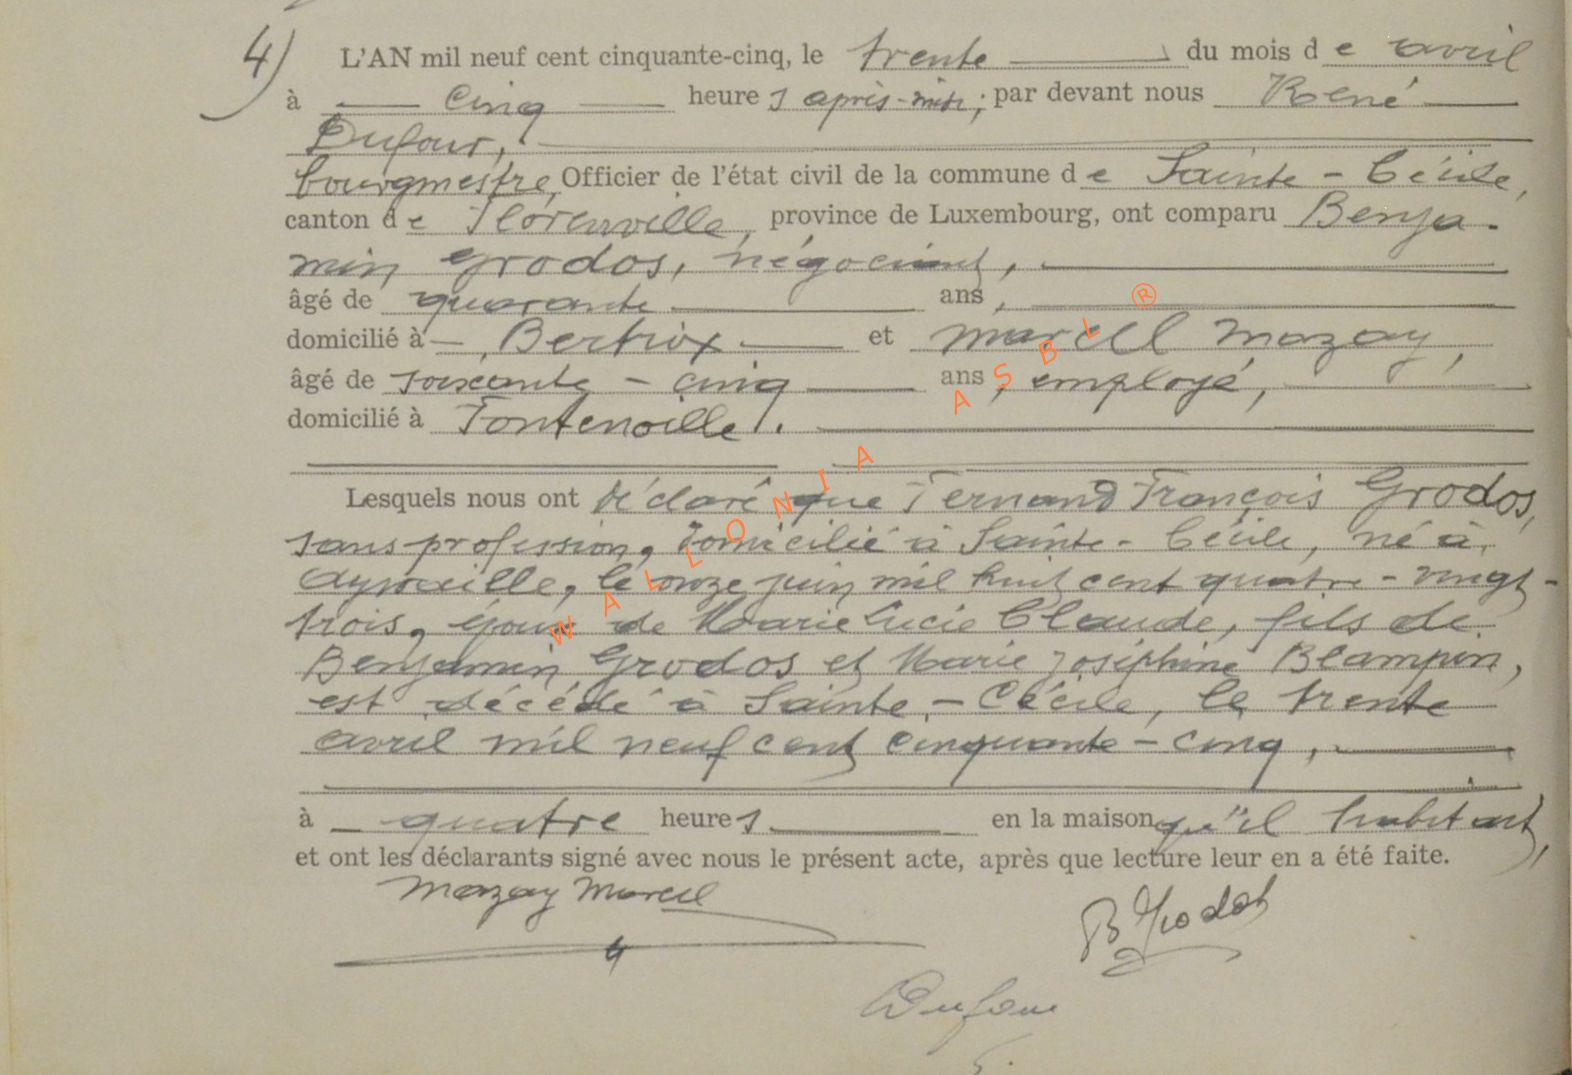 4) L'AN mil neuf cent cinquante-cinq, le trente du mois de avril
à cinq heures après-midi; par devant nous René
Dufour,
bourgmestre, Officier de l'état civil de la commune de Sainte-Cécile,
canton de Florenville, province de Luxembourg, ont comparu Benja-
min Grodos, négociant,
âgé de quarante ans,
domicilié à Bertrix et Marcel Mazay,
âgé de soixante-cinq ans, employé,
domicilié à Fontenoille.
Lesquels nous ont déclaré que Fernand François Grodos,
sans profession, domicilié à Sainte-Cécile, né à
Aywaille, le onze juin mil huit cent quatre-vingt-
trois, époux de Marie Lucie Claude, fils de
Benjamin Grodos et Marie Joséphine Blampin,
est décédé à Sainte-Cécile, le trente
avril mil neuf cent cinquante-cinq,
à quatre heures en la maison qu'il habitait,
et ont les déclarants signé avec nous le présent acte, après que lecture leur en a été faite.
Mazay Marcel
B Grodos
Dufour
WALLONIA ASBL ®